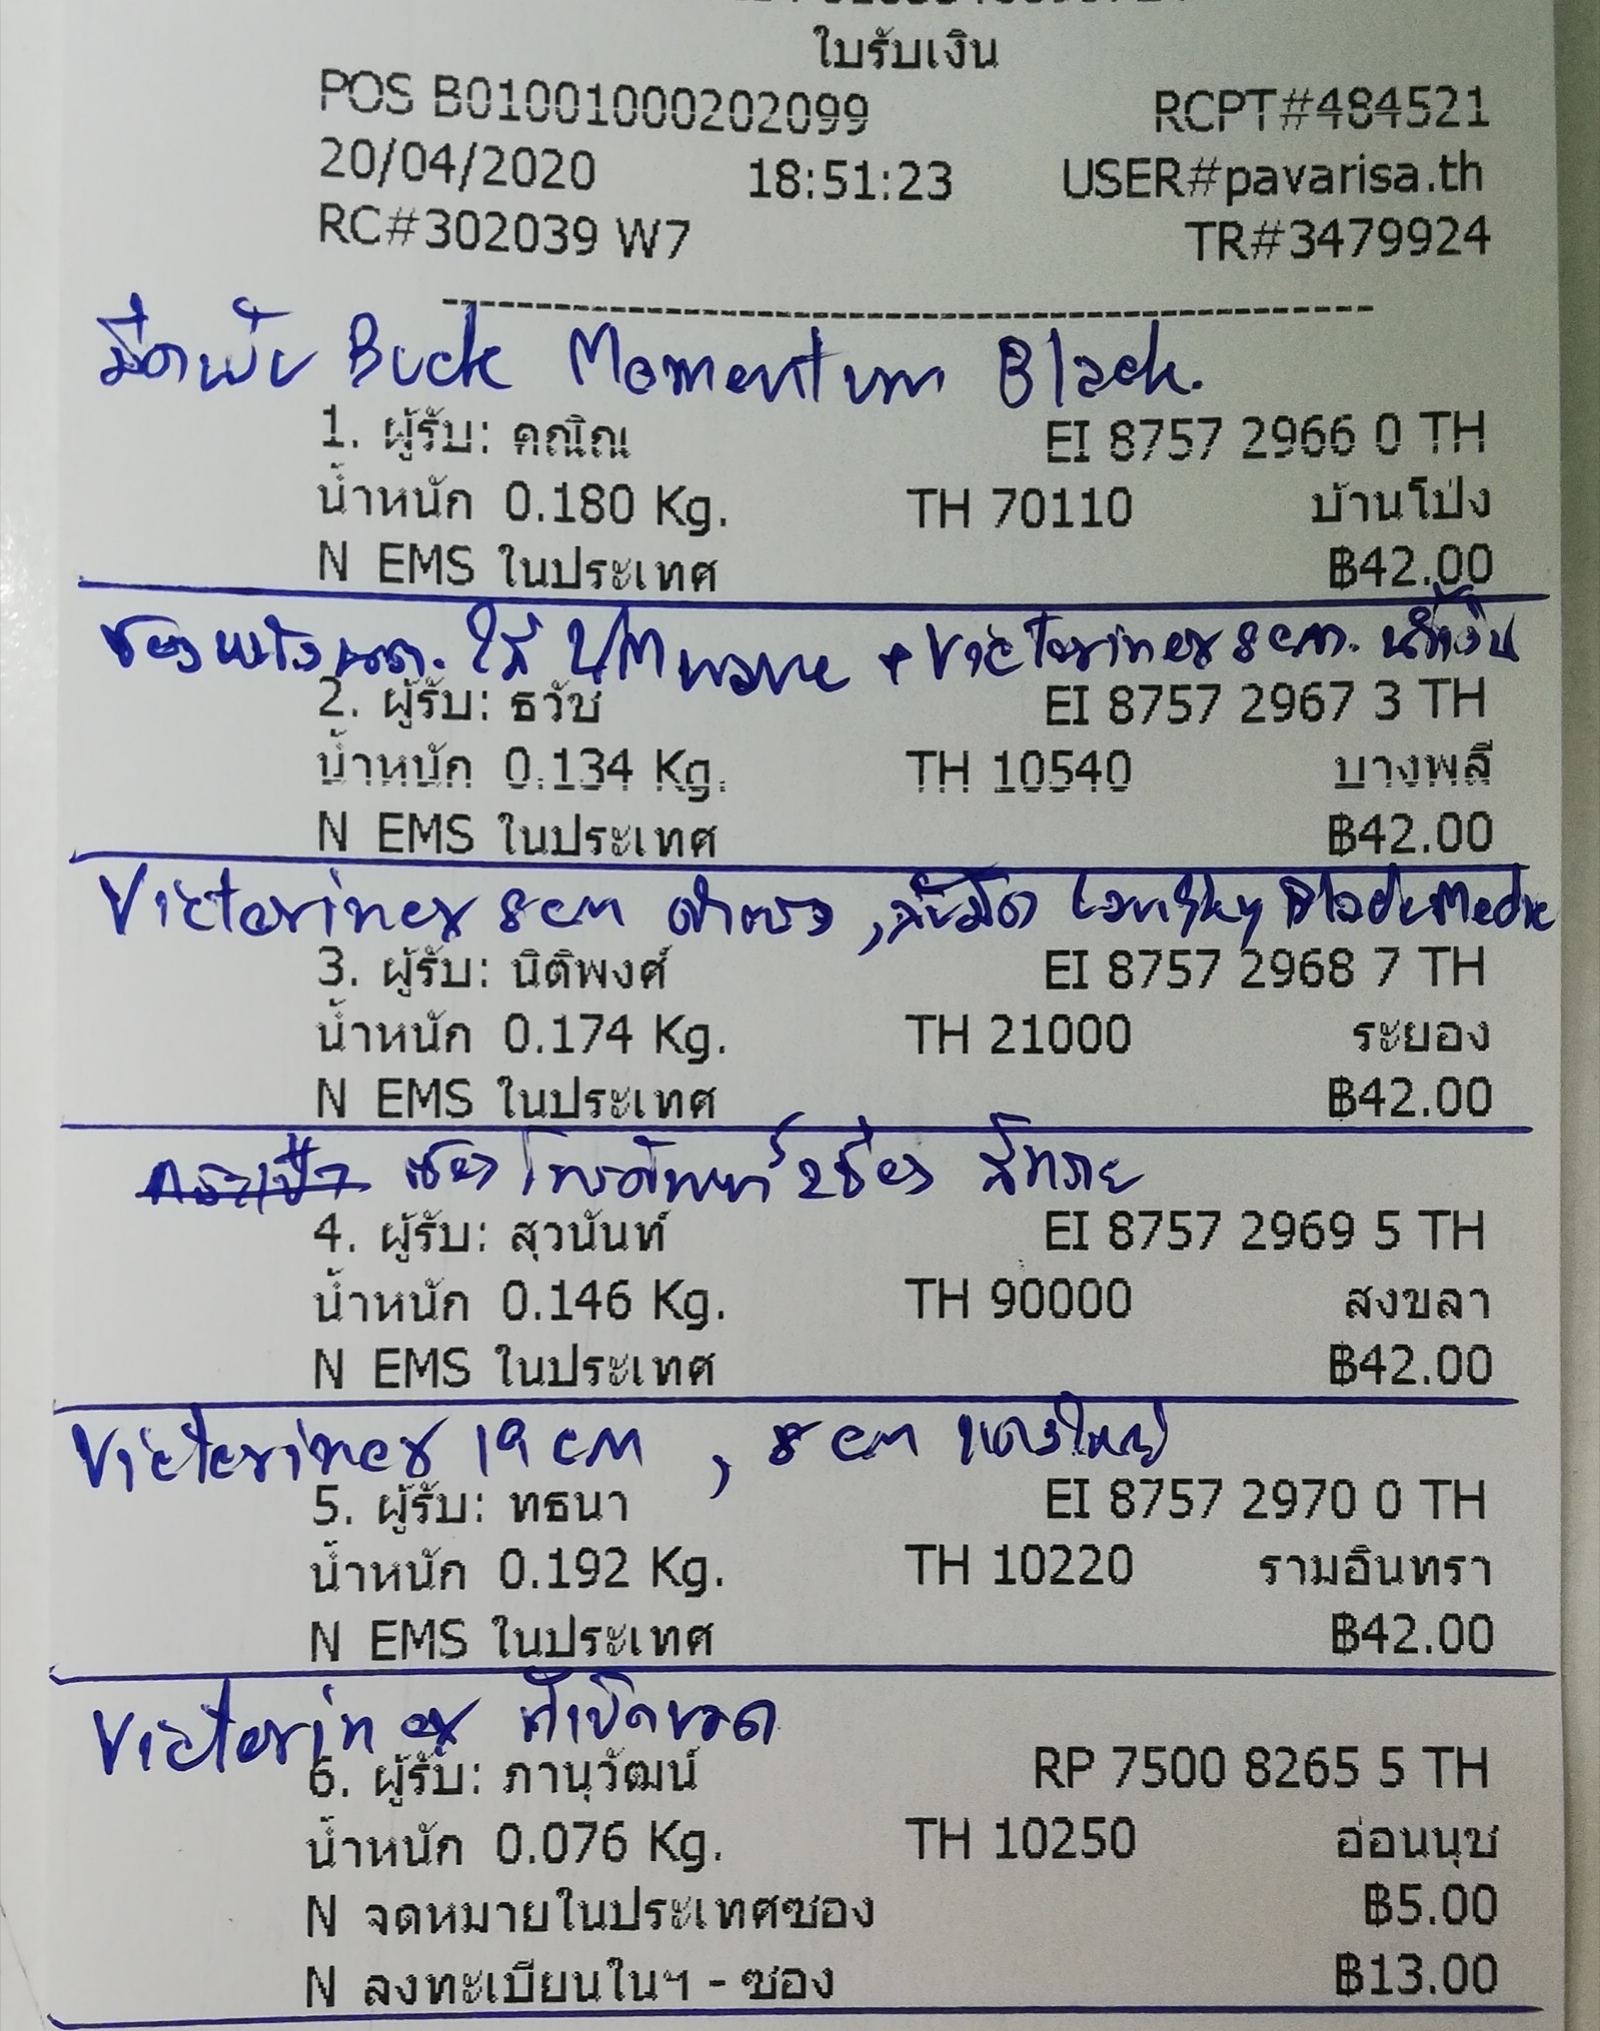 ใบรับเงิน
POS B01001000202099 RCPT#484521
20/04/2020 18:51:23 USER#pavarisa.th
RC#302039 W7 TR#3479924
มีดพับ Buck Momentum Black.
1. ผู้รับ: คณิณ EI 8757 2966 0 TH
น้ำหนัก 0.180 Kg. TH 70110 บ้านโป่ง
N EMS ในประเทศ ฿42.00
ซองหนัง ใส่ wave + Victorinox 8 cm. น้ำเงิน
2. ผู้รับ: ธวัช EI 8757 2967 3 TH
น้ำหนัก 0.134 Kg. TH 10540 บางพลี
N EMS ในประเทศ ฿42.00
Victorinox 8 cm ดำ , ลับมีด Lansky Black Medic
3. ผู้รับ: นิติพงศ์ EI 8757 2968 7 TH
น้ำหนัก 0.174 Kg. TH 21000 ระยอง
N EMS ในประเทศ ฿42.00
กระเป๋า ซองโทรศัพท์ 2 ช่อง สีทราย
4. ผู้รับ: สุวนันท์ EI 8757 2969 5 TH
น้ำหนัก 0.146 Kg. TH 90000 สงขลา
N EMS ในประเทศ ฿42.00
Victorinox 19 cm , 8 cm แดงใหญ่
5. ผู้รับ: ทธนา EI 8757 2970 0 TH
น้ำหนัก 0.192 Kg. TH 10220 รามอินทรา
N EMS ในประเทศ ฿42.00
Victorinox ที่เปิดขวด
6. ผู้รับ: ภานุวัฒน์ RP 7500 8265 5 TH
น้ำหนัก 0.076 Kg. TH 10250 อ่อนนุช
N จดหมายในประเทศซอง ฿5.00
N ลงทะเบียนในฯ - ซอง ฿13.00